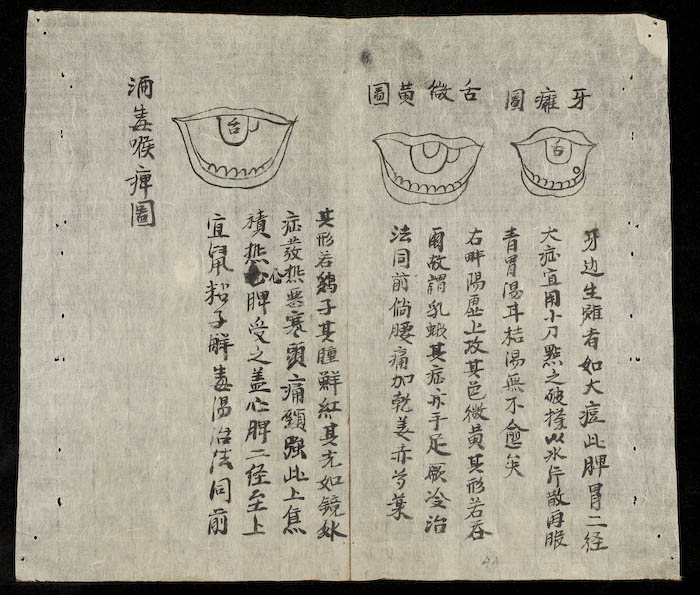 牙癰圖
舌
牙边生雍者如大痘此脾胃二径
大症宜用小刀點之破搽以氷片散再服
青胃湯耳桔湯無不愈矣
舌微黃圖
右畔陽虛上攻其色微黃其形若吞
爾故謂乳蛾其症亦手足厥冷治
法同前倘腰痛加乾姜赤芍葉
舌
其形若鷄子其腫鮮紅其光如镜外
症發热悪寒頭痛頸強此上焦
積热心脾受之盖心脾二径至上
宜鼠粘子解毒湯治法同前
酒毒喉痺圖